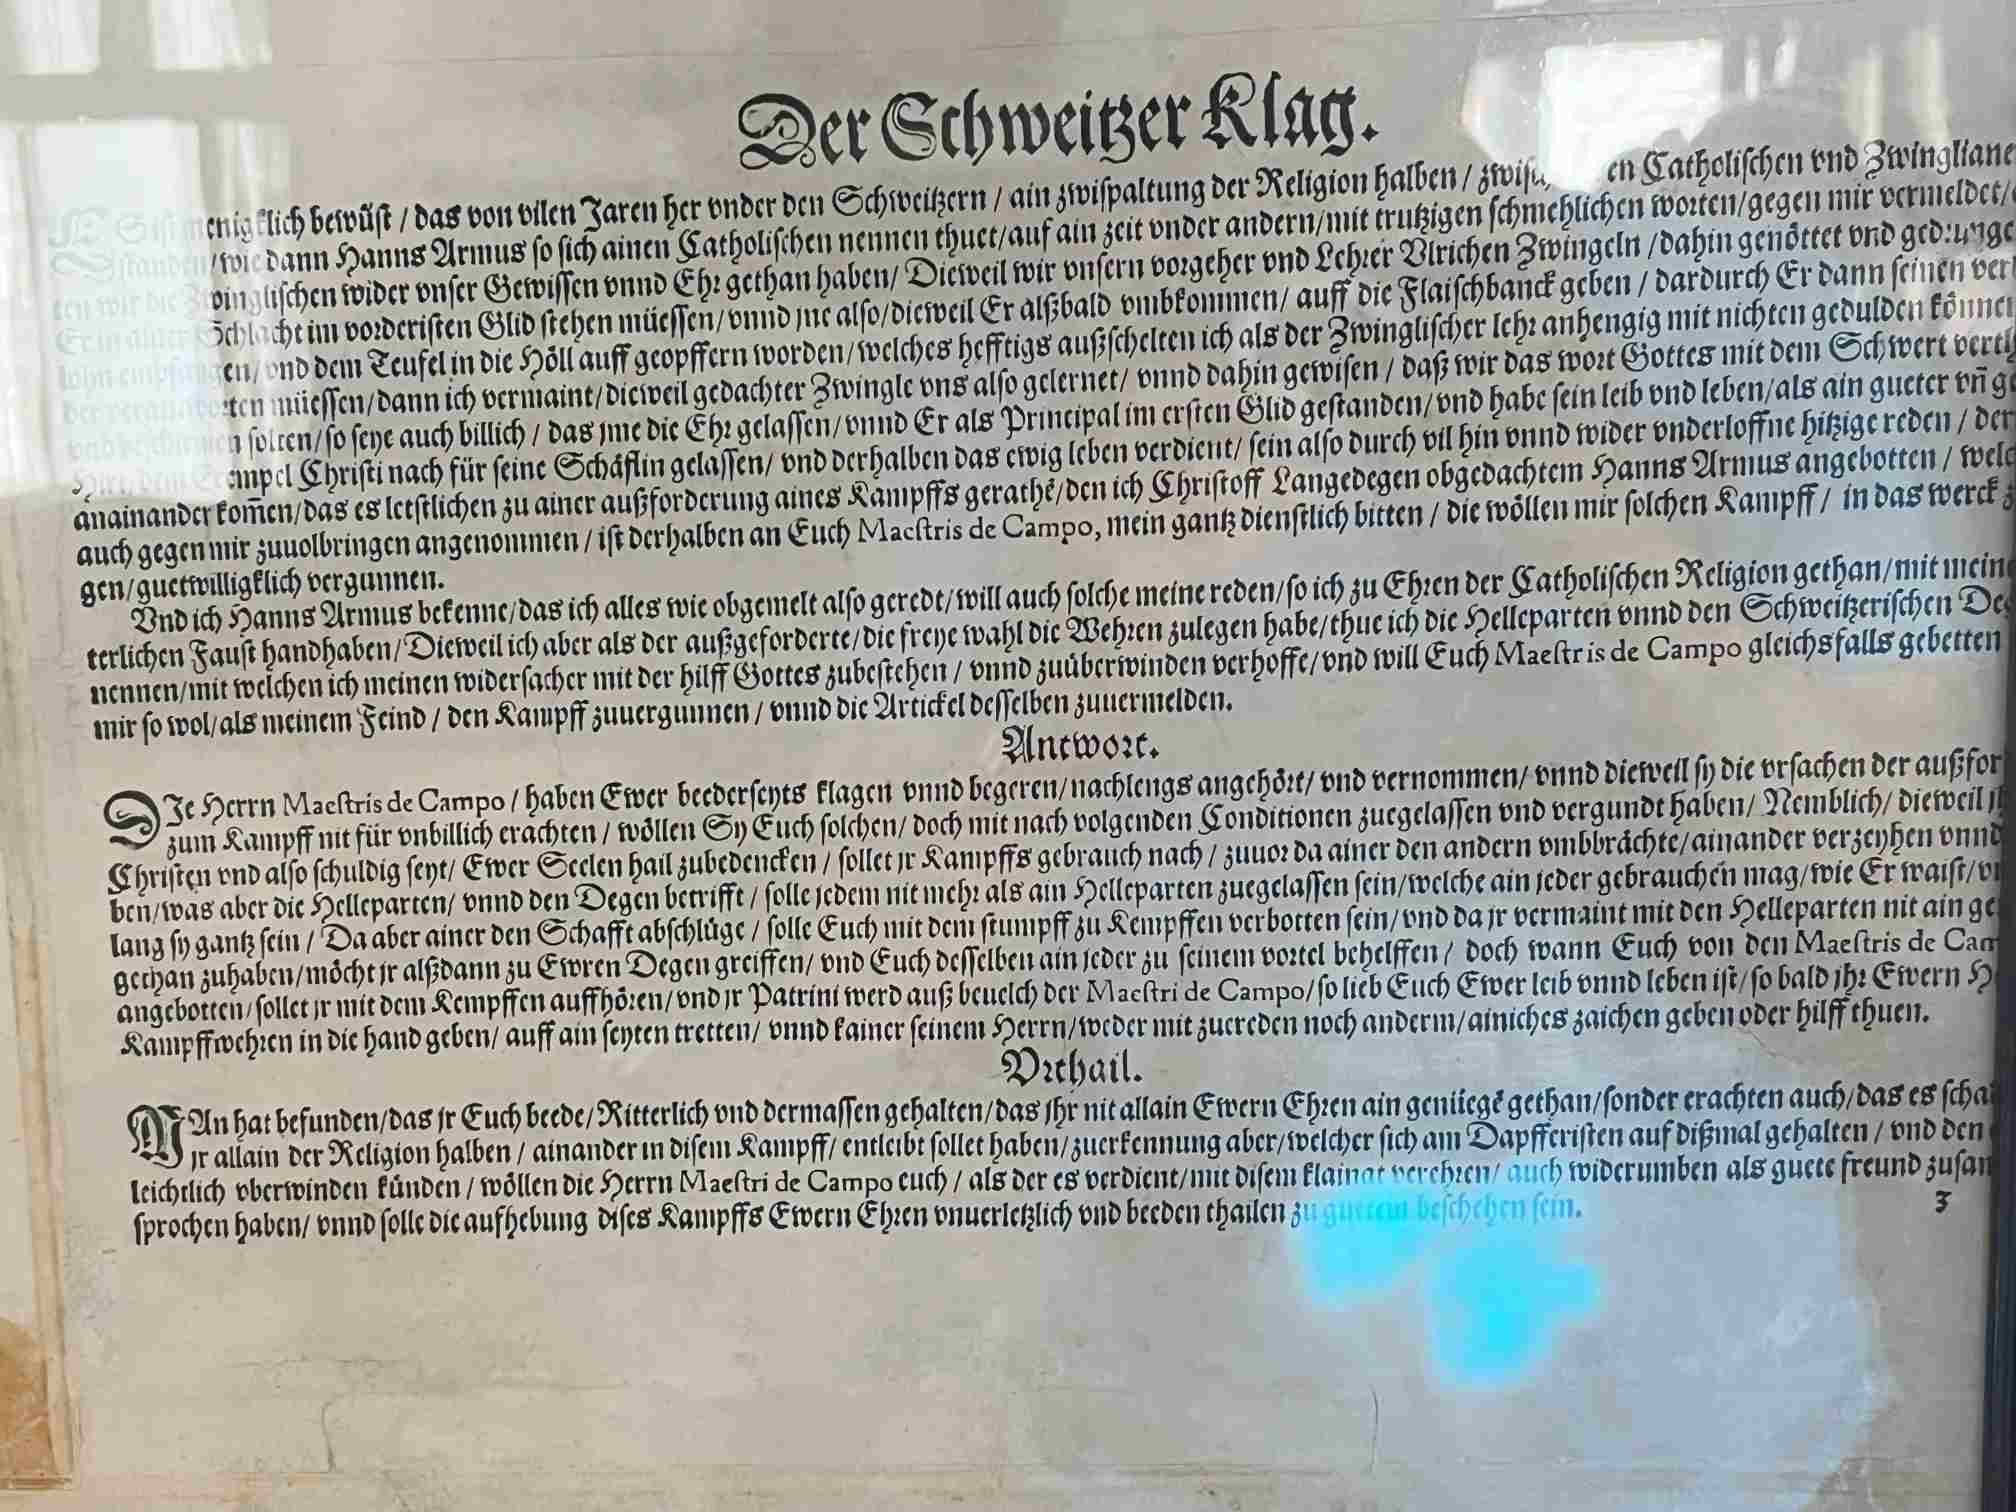 Der Schweitzer Klag.
ES ist menigklich bewüst / das von vilen Jaren her vnder den Schweitzern / ain zwispaltung der Religion halben / en Catholischen vnd Zwingliane
standen / wie dann Hanns Armus so sich ainen Catholischen nennen thuet / auf ain zeit vnder andern / mit trutzigen schmehlichen worten / gegen mir vermeldet /
ten wir die Zwinglischen wider vnser Gewissen vnnd Ehr gethan haben / Dieweil wir vnsern vorgeher vnd Lehrer Vlrichen Zwingeln / dahin genöttet vnd gedrunge
Er in ainer Schlacht im vorderisten Glid stehen müessen / vnnd jne also / dieweil Er alßbald vmbkommen / auff die Flaischbanck geben / dardurch Er dann seinen
lohn empfangen / vnd dem Teufel in die Höll auff geopffern worden / welches hefftigs außschelten ich als der Zwinglischer lehr anhengig mit nichten gedulden können
müessen / dann ich vermaint / dieweil gedachter Zwingle vns also gelernet / vnnd dahin gewisen / daß wir das wort Gottes mit dem Schwert
solten / so seye auch billich / das jme die Ehr gelassen / vnnd Er als Principal im ersten Glid gestanden / vnd habe sein leib vnd leben / als ain gueter vn̄
Hirt, dem Exempel Christi nach für seine Schäflin gelassen / vnd derhalben das ewig leben verdient / sein also durch vil hin vnnd wider vnderloffne hitzige reden / der
anainander kom̄en / das es letstlichen zu ainer außforderung aines Kampffs gerathē / den ich Christoff Langedegen obgedachtem Hanns Armus angebotten / welc
auch gegen mir zuuolbringen angenommen / ist derhalben an Euch Maestris de Campo, mein gantz dienstlich bitten / die wöllen mir solchen Kampff / in das werck
gen / guetwilligklich vergunnen.
Vnd ich Hanns Armus bekenne / das ich alles wie obgemelt also geredt / will auch solche meine reden / so ich zu Ehren der Catholischen Religion gethan / mit mein
terlichen Faust handhaben / Dieweil ich aber als der außgeforderte / die freye wahl die Wehren zulegen habe / thue ich die Helleparten vnnd den Schweitzerischen De
nennen / mit welchen ich meinen widersacher mit der hilff Gottes zubestehen / vnnd zuüberwinden verhoffe / vnd will Euch Maestris de Campo gleichsfalls gebetten
mir so wol / als meinem Feind / den Kampff zuuergunnen / vnnd die Artickel desselben zuuermelden.
Antwort.
DJe Herrn Maestris de Campo / haben Ewer beederseyts klagen vnnd begeren / nachlengs angehört / vnd vernommen / vnnd dieweil sy die vrsachen der außfor
zum Kampff nit für vnbillich erachten / wöllen Sy Euch solchen / doch mit nach volgenden Conditionen zuegelassen vnd vergundt haben / Nemblich / dieweil
Christen vnd also schuldig seyt / Ewer Seelen hail zubedencken / sollet jr Kampffs gebrauch nach / zuuor da ainer den andern vmbbrächte / ainander verzeyhen vnnd
ben / was aber die Helleparten / vnnd den Degen betrifft / solle jedem nit mehr als ain Helleparten zuegelassen sein / welche ain jeder gebrauchen mag / wie Er waist /
lang sy gantz sein / Da aber ainer den Schafft abschlüge / solle Euch mit dem stumpff zu Kempffen verbotten sein / vnd da jr vermaint mit den Helleparten nit ain ge
gethan zuhaben / möcht jr alßdann zu Ewren Degen greiffen / vnd Euch desselben ain jeder zu seinem vortel behelffen / doch wann Euch von den Maestris de Cam
angebotten / sollet jr mit dem Kempffen auffhören / vnd jr Patrini werd auß beuelch der Maestri de Campo / so lieb Euch Ewer leib vnnd leben ist / so bald jhr Ewern
Kampffwehren in die hand geben / auff ain seyten tretten / vnnd kainer seinem Herrn / weder mit zuereden noch anderm / ainiches zaichen geben oder hilff thuen.
Vrthail.
MAn hat befunden / das jr Euch beede / Ritterlich vnd dermassen gehalten / das jhr nit allain Ewern Ehren ain genüegē gethan / sonder erachten auch / das es
jr allain der Religion halben / ainander in disem Kampff / entleibt sollet haben / zuerkennung aber / welcher sich am Dapfferisten auf dißmal gehalten / vnd den
leichtlich vberwinden künden / wöllen die Herrn Maestri de Campo euch / als der es verdient / mit disem klainat verehren / auch widerumben als guete freund
sprochen haben / vnnd solle die aufhebung dises Kampffs Ewern Ehren vnuerletzlich vnd beeden thailen zu guetem beschehen sein.
3